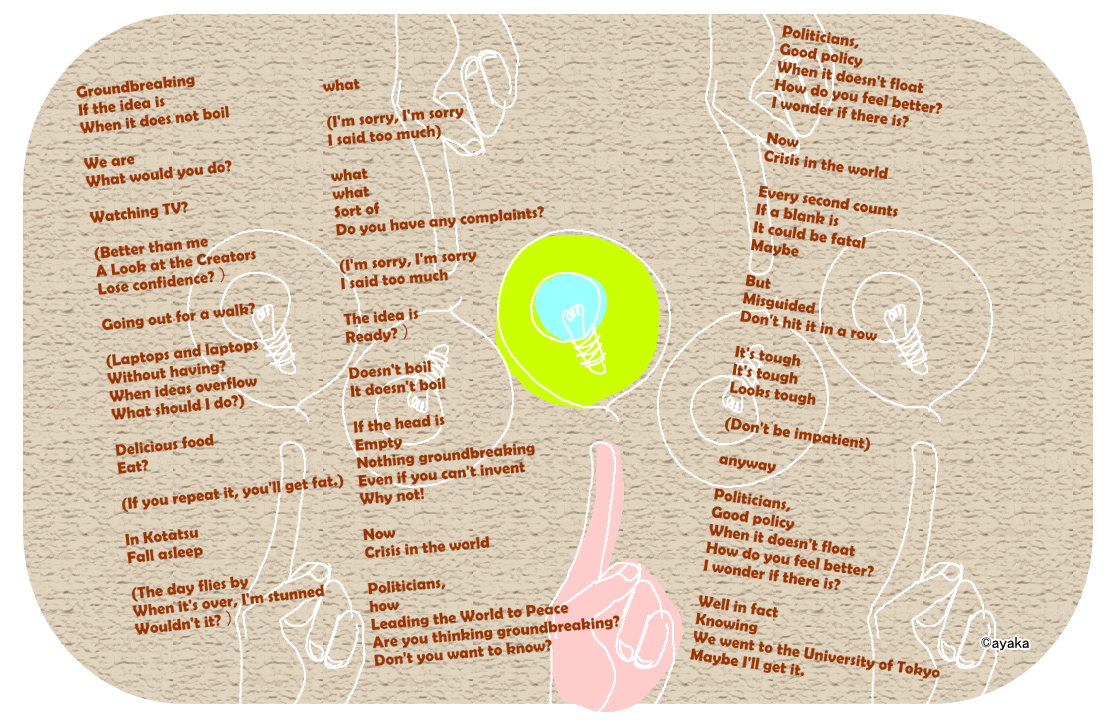 Groundbreaking
If the idea is
When it does not boil
We are
What would you do?
Watching TV?
(Better than me
A Look at the Creators
Lose confidence? )
Going out for a walk?
(Laptops and laptops
Without having?
When ideas overflow
What should I do?)
Delicious food
Eat?
(If you repeat it, you'll get fat.)
In Kotatsu
Fall asleep
(The day flies by
When it's over, I'm stunned
Wouldn't it? )
what
(I'm sorry, I'm sorry
I said too much)
what
what
Sort of
Do you have any complaints?
(I'm sorry, I'm sorry
I said too much
The idea is
Ready? )
Doesn't boil
It doesn't boil
If the head is
Empty
Nothing groundbreaking
Even if you can't invent
Why not!
Now
Crisis in the world
Politicians,
how
Leading the World to Peace
Are you thinking groundbreaking?
Don't you want to know?
Politicians,
Good policy
When it doesn't float
How do you feel better?
I wonder if there is?
Now
Crisis in the world
Every second counts
If a blank is
It could be fatal
Maybe
But
Misguided
Don't hit it in a row
It's tough
It's tough
Looks tough
(Don't be impatient)
anyway
Politicians,
Good policy
When it doesn't float
How do you feel better?
I wonder if there is?
Well in fact
Knowing
We went to the University of Tokyo
Maybe I'll get it.
©ayaka